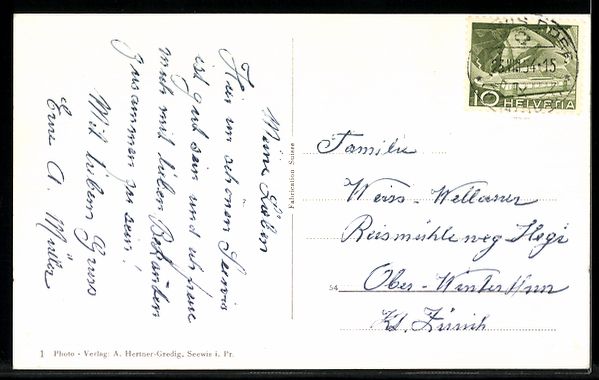 Meine Lieben
Hier im schönen Seewis
ist gut sein und ich freue
mich mit lieben Bekannten
zusammen zu sein!
Mit liebem Gruss
Eure A. Müller
Fabrication Suisse
Familie
Weiss-Wellauer
Reismühleweg Hegi
54
Ober-Winterthur
Kt. Zürich
23.VIII.54-15
10 HELVETIA
1 Photo - Verlag: A. Hertner-Gredig, Seewis i. Pr.